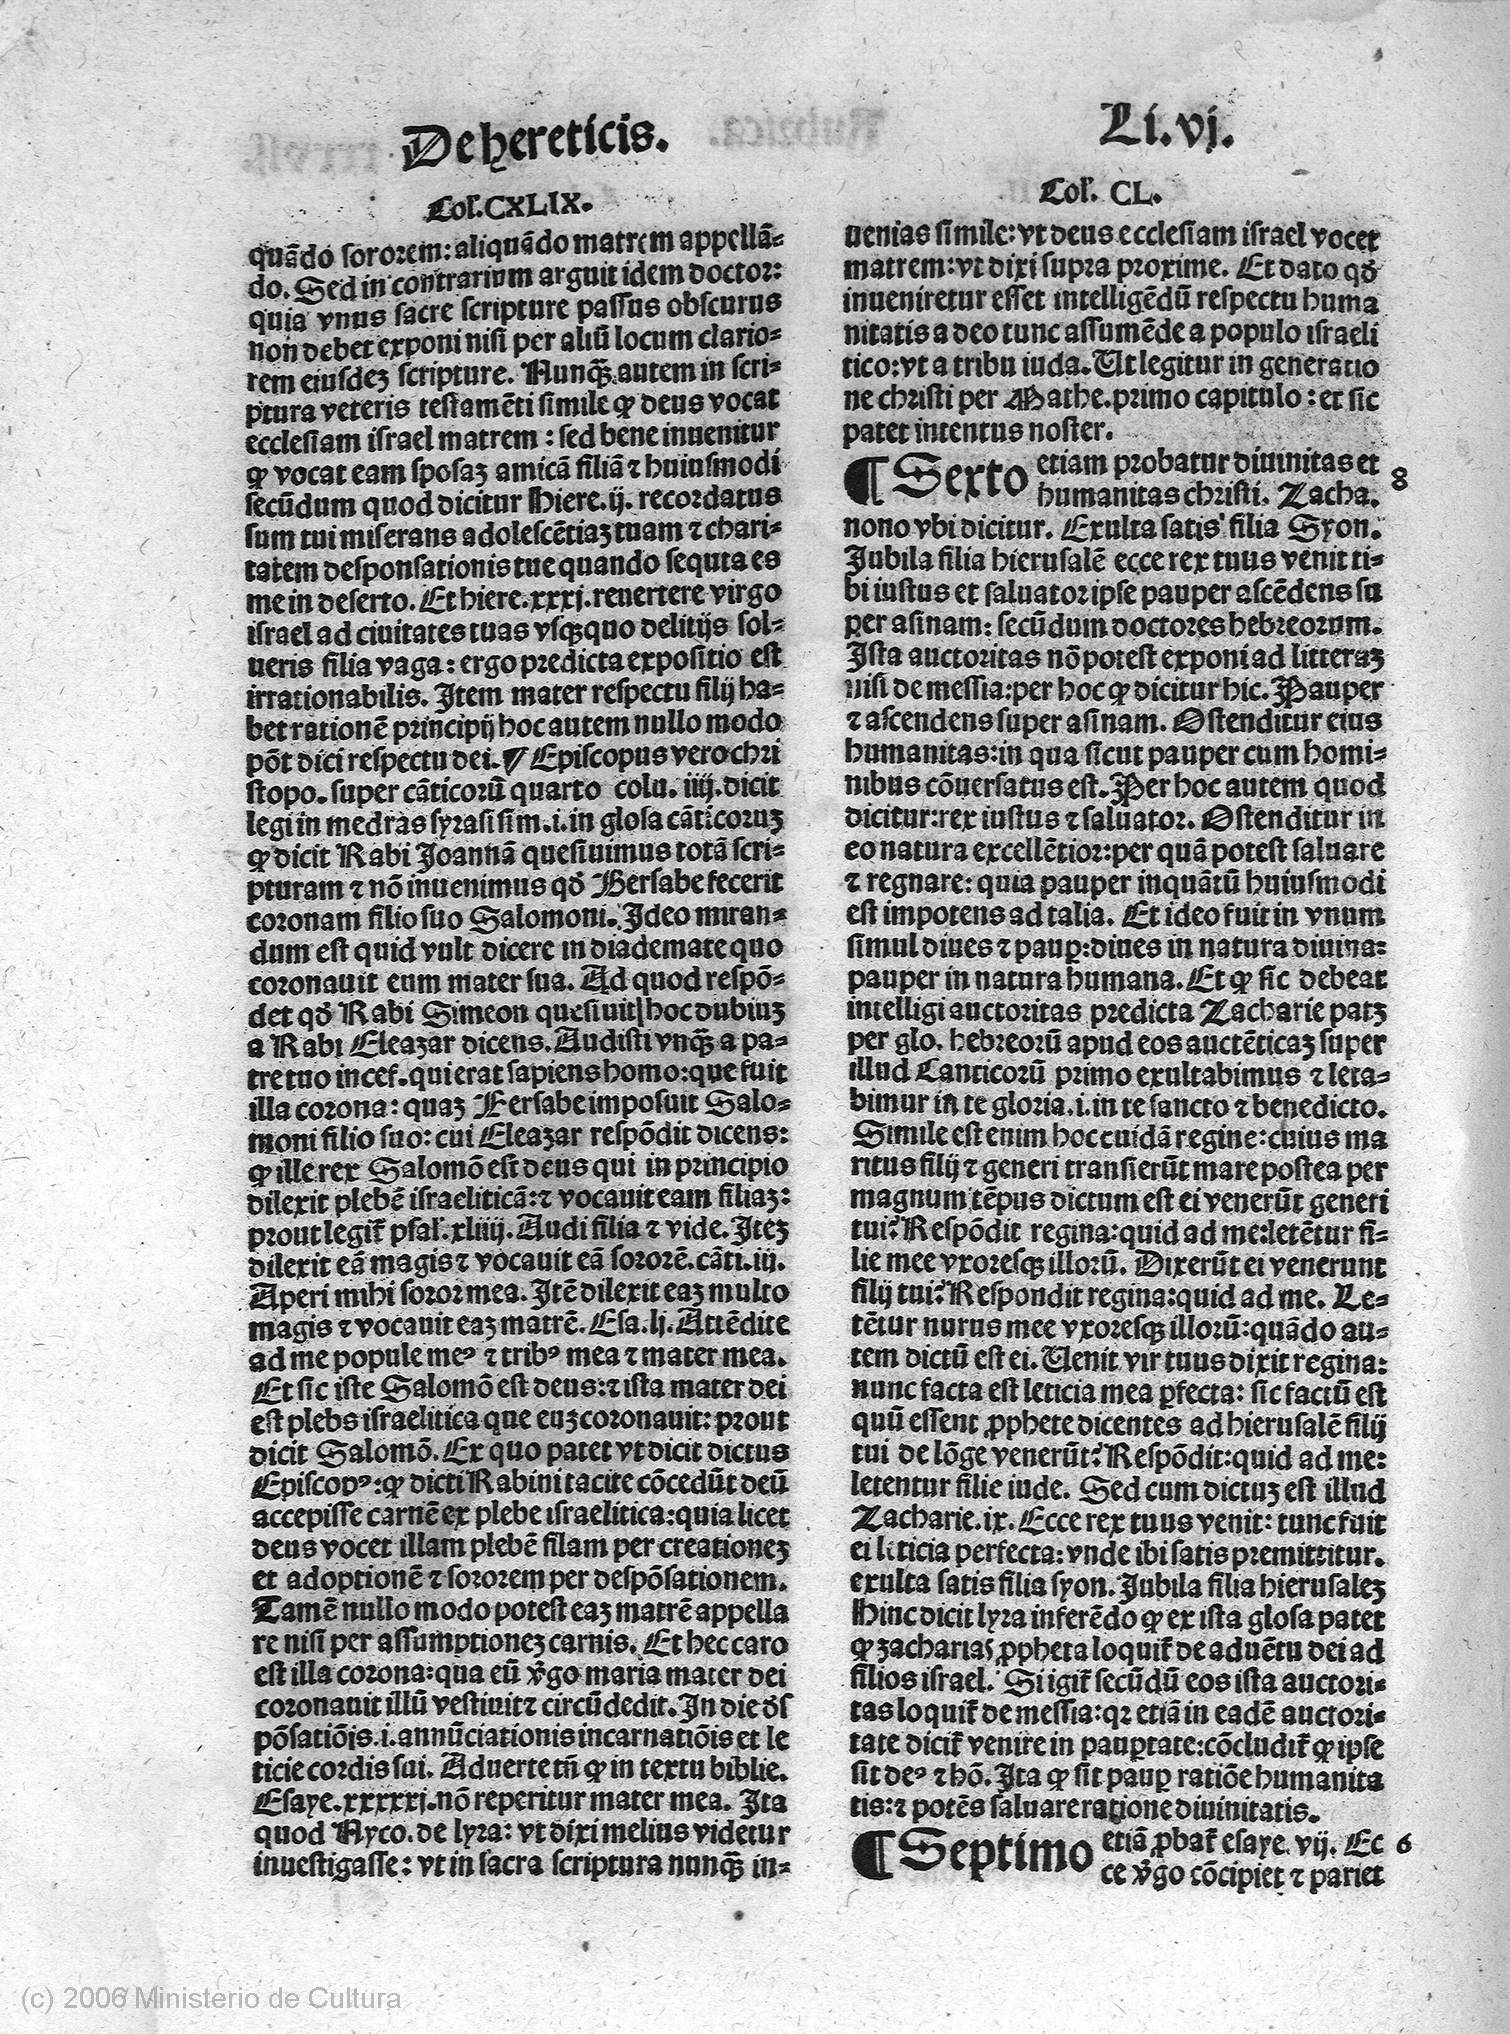 De hereticis.
Li. vj.
Col. CXLIX.
quādo sororem: aliquādo matrem appellā-
do. Sed in contrarium arguit idem doctor:
quia vnus sacre scripture passus obscurus
non debet exponi nisi per aliū locum clario-
rem eiusdeʒ scripture. Nunqȝ autem in scri-
ptura veteris testamēti simile ꝙ deus vocat
ecclesiam israel matrem : sed bene inuenitur
ꝙ vocat eam sposaʒ amicā filiā ⁊ huiusmodi
secūdum quod dicitur Hiere. ij. recordatus
sum tui miserans adolescētiaʒ tuam ⁊ chari-
tatem desponsationis tue quando sequta es
me in deserto. Et hiere. xxxj. reuertere virgo
israel ad ciuitates tuas vsqȝ quo delitijs sol-
ueris filia vaga : ergo predicta expositio est
irrationabilis. Item mater respectu filij ha-
bet rationē principij hoc autem nullo modo
pōt dici respectu dei. ¶ Episcopus vero chri
stopo. super cāticorū quarto colu. iiij. dicit
legi in medras syrasisim .i. in glosa cāticoruʒ
ꝙ dicit Rabi Joannā quesiuimus totā scri-
pturam ⁊ nō inuenimus qđ Bersabe fecerit
coronam filio suo Salomoni. Ideo miran-
dum est quid vult dicere in diademate quo
coronauit eum mater sua. Ad quod respō-
det qđ Rabi Simeon quesiuit hoc dubiuʒ
a Rabi Eleazar dicens. Audisti vnqȝ a pa-
tre tuo incef. qui erat sapiens homo: que fuit
illa corona: quaʒ Bersabe imposuit Salo-
moni filio suo: cui Eleazar respōdit dicens:
ꝙ ille rex Salomō est deus qui in principio
dilexit plebē israeliticā: ⁊ vocauit eam filiaʒ:
prout legit̃ psal. xliiij. Audi filia ⁊ vide. Iteʒ
dilexit eā magis ⁊ vocauit eā sororē. cāti. iij.
Aperi mihi soror mea. Itē dilexit eaʒ multo
magis ⁊ vocauit eaʒ matrē. Esa. lj. Attēdite
ad me popule meꝰ ⁊ tribꝰ mea ⁊ mater mea.
Et sic iste Salomō est deus: ⁊ ista mater dei
est plebs israelitica que euʒ coronauit: prout
dicit Salomō. Ex quo patet vt dicit dictus
Episcopꝰ: ꝙ dicti Rabini tacite cōcedūt deū
accepisse carnē ex plebe israelitica: quia licet
deus vocet illam plebē filam per creationeʒ
et adoptionē ⁊ sororem per despōsationem.
Tamē nullo modo potest eaʒ matrē appella
re nisi per assumptioneʒ carnis. Et hec caro
est illa corona: qua eū v̄go maria mater dei
coronauit illū vestiuit ⁊ circūdedit. In die đs
pōsatiōis .i. annūciationis incarnatiōis et le
ticie cordis sui. Aduerte tn̄ ꝙ in textu biblie.
Esaye. xxxxxj. nō reperitur mater mea. Ita
quod Nyco. de lyra: vt dixi melius videtur
inuestigasse: vt in sacra scriptura nunqȝ in-
Col. CL.
uenias simile: vt deus ecclesiam israel vocet
matrem: vt dixi supra proxime. Et dato qđ
inueniretur esset intelligēdū respectu huma
nitatis a deo tunc assumēde a populo israeli
tico: vt a tribu iuda. Ut legitur in generatio
ne christi per Mathe. primo capitulo : et sic
patet intentus noster.
¶ Sexto etiam probatur diuinitas et 8
humanitas christi. Zacha.
nono vbi dicitur. Exulta satis filia Syon.
Jubila filia hierusalē ecce rex tuus venit ti-
bi iustus et saluator ipse pauper ascēdens su
per asinam: secūdum doctores hebreorum.
Ista auctoritas nō potest exponi ad litteraʒ
nisi de messia: per hoc ꝙ dicitur hic. Pauper
⁊ ascendens super asinam. Ostenditur eius
humanitas: in qua sicut pauper cum homi-
nibus cōuersatus est. Per hoc autem quod
dicitur: rex iustus ⁊ saluator. Ostenditur in
eo natura excellētior: per quā potest saluare
⁊ regnare: quia pauper inquātū huiusmodi
est impotens ad talia. Et ideo fuit in vnum
simul diues ⁊ paup̲: diues in natura diuina:
pauper in natura humana. Et ꝙ sic debeat
intelligi auctoritas predicta Zacharie patʒ
per glo. hebreorū apud eos auctēticaʒ super
illud Canticorū primo exultabimus ⁊ leta-
bimur in te gloria .i. in te sancto ⁊ benedicto.
Simile est enim hoc cuidā regine: cuius ma
ritus filij ⁊ generi transierūt mare postea per
magnum tēpus dictum est ei venerūt generi
tui? Respōdit regina: quid ad me: letētur fi-
lie mee vxoresqȝ illorū. Dixerūt ei venerunt
filij tui? Respondit regina: quid ad me. Le-
tētur nurus mee vxoresqȝ illorū: quādo au-
tem dictū est ei. Uenit vir tuus dixit regina:
nunc facta est leticia mea ꝑfecta: sic factū est
quū essent ꝓphete dicentes ad hierusalē filij
tui de lōge venerūt? Respōdit: quid ad me:
letentur filie iude. Sed cum dictuʒ est illud
Zacharie. ix. Ecce rex tuus venit: tunc fuit
ei leticia perfecta: vnde ibi satis premittitur.
exulta satis filia syon. Jubila filia hierusaleʒ
Hinc dicit lyra inferēdo ꝙ ex ista glosa patet
ꝙ zacharias ꝓpheta loquit̃ de aduētu dei ad
filios israel. Si igit̃ secūdū eos ista auctori-
tas loquit̃ de messia: qꝛ etiā in eadē auctori-
tate dicit̃ venire in paup̲tate: cōcludit̃ ꝙ ipse
sit deꝰ ⁊ hō. Ita ꝙ sit paup̲ ratiōe humanita
tis: ⁊ potēs saluare ratione diuinitatis.
¶ Septimo etiā ꝓbat̃ esaye. vij. Ec 6
ce v̄go cōcipiet ⁊ pariet
(c) 2006 Ministerio de Cultura